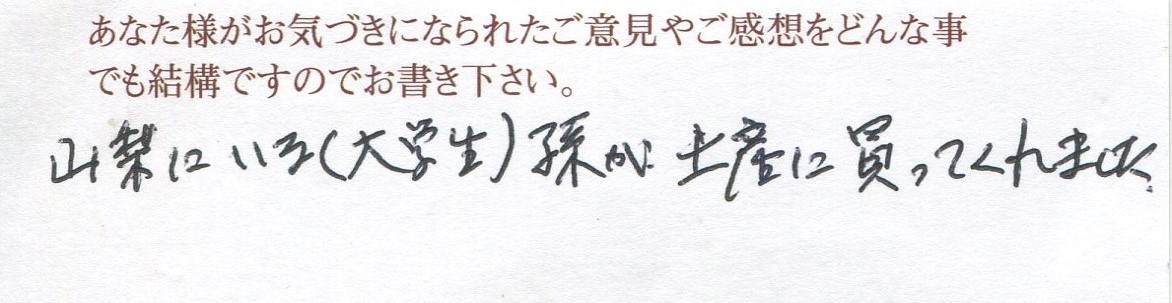 あなた様がお気づきになられたご意見やご感想をどんな事
でも結構ですのでお書き下さい。
山梨にいる(大学生)孫が土産に買ってくれました